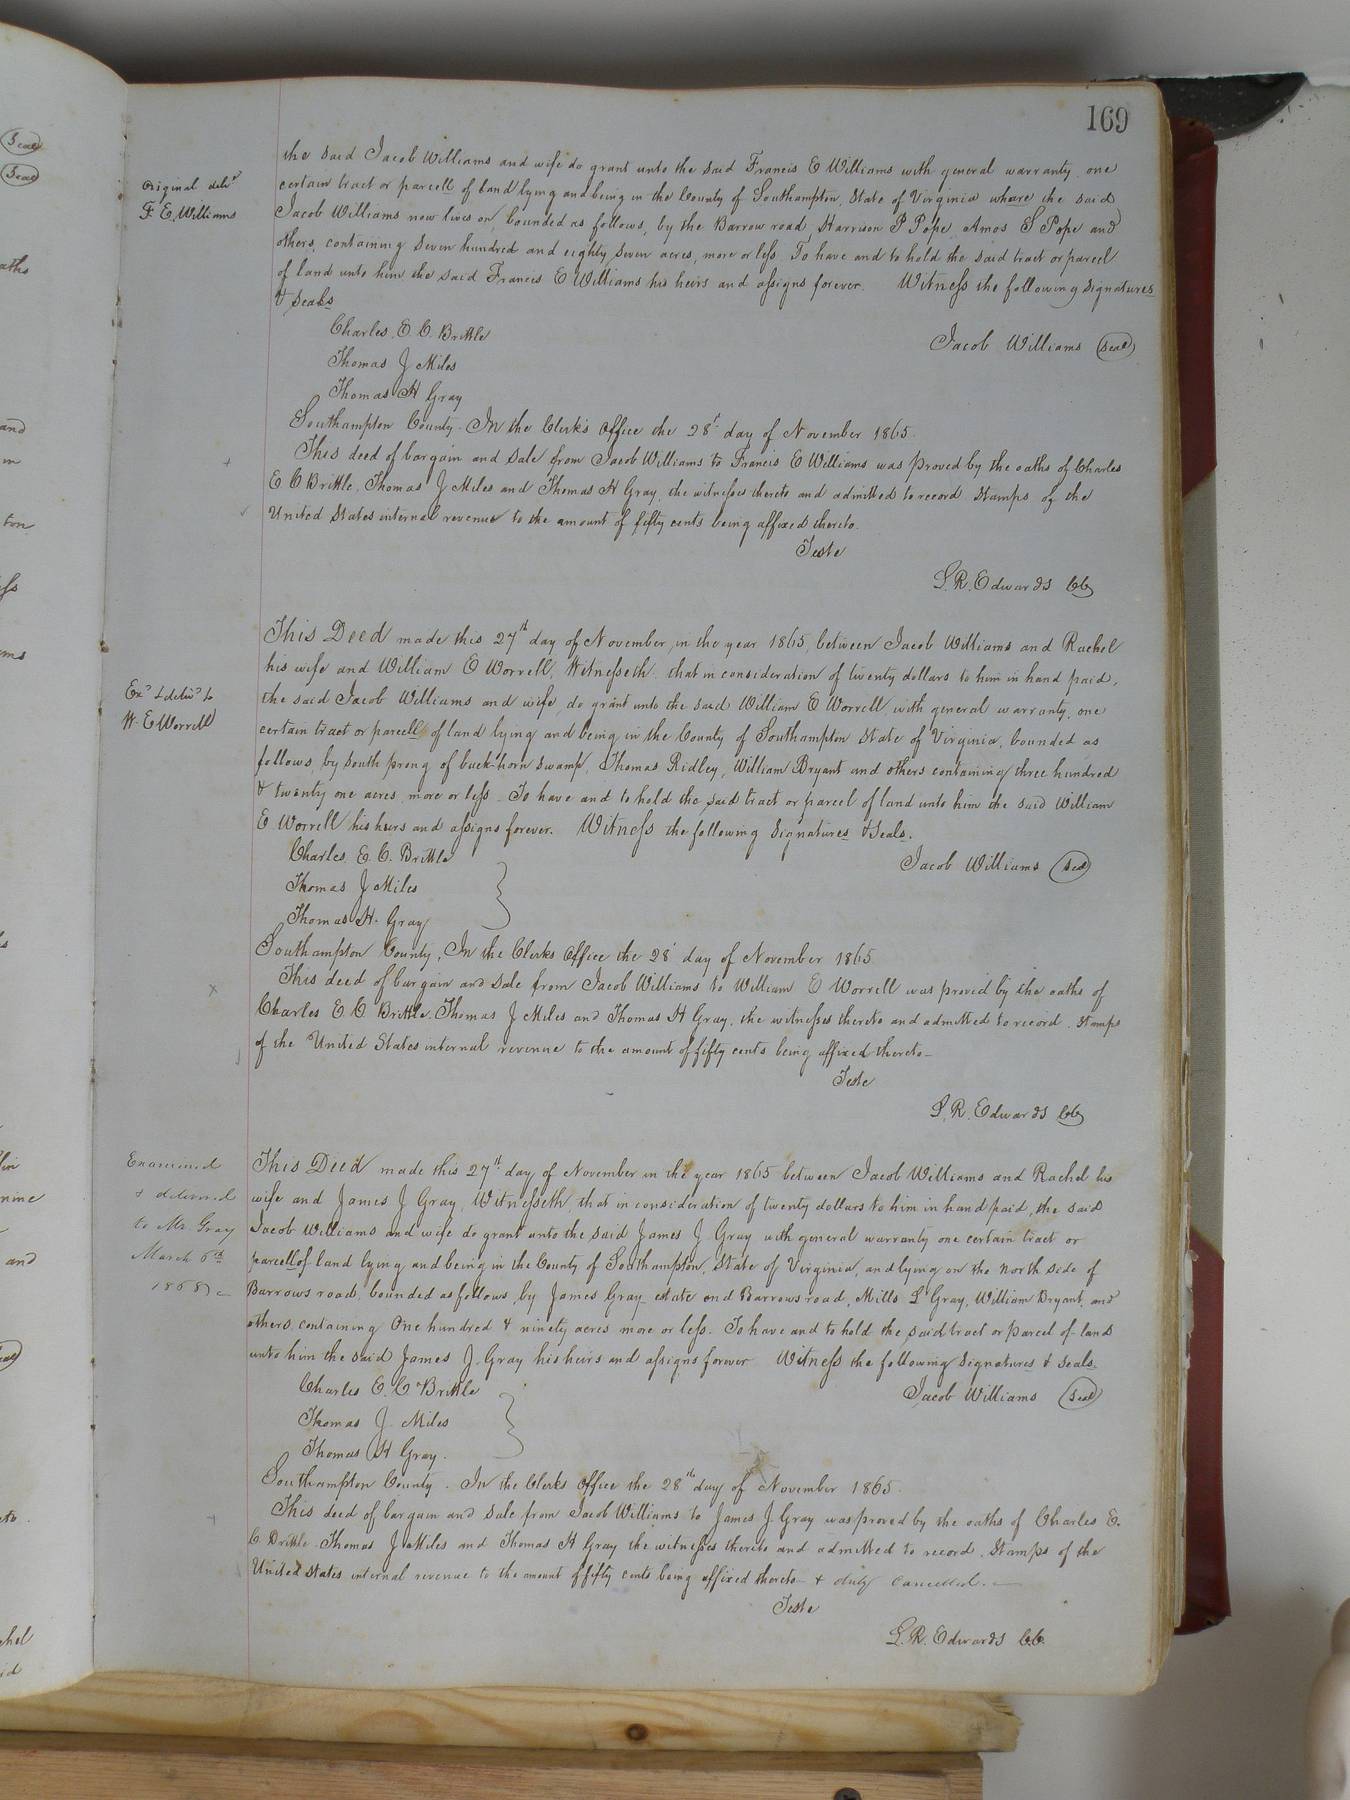 169
Original deliv^d
F. E. Williams
the said Jacob Williams and wife do grant unto the said Francis E Williams with general warranty one
certain tract or parcell of land lying and being in the County of Southampton, State of Virginia where the said
Jacob Williams now lives on, bounded as follows, by the Barrow road, Harrison P Pope, Amos S Pope and
others, containing Seven hundred and eighty seven acres, more or less To have and to hold the said tract or parcel
of land unto him the said Francis E Williams his heirs and assigns forever. Witness the following signatures
& seals
Charles. E. C. Brittle
Jacob Williams (Seal)
Thomas J Miles
Thomas H Gray
Southampton County. In the Clerk's Office the 28^t day of November 1865.
This deed of bargain and sale from Jacob Williams to Francis E Williams was proved by the oaths of Charles
E C Brittle, Thomas J Miles and Thomas H Gray, the witnesses thereto and admitted to record Stamps of the
United States internal revenue to the amount of fifty cents being affixed thereto.
Teste
L. R. Edwards CC
Ex^d & deliv^d to
W. E Worrell
This Deed made this 27^th day of November, in the year 1865, between Jacob Williams and Rachel
his wife and William E Worrell, Witnesseth that in consideration of twenty dollars to him in hand paid,
the said Jacob Williams and wife, do grant unto the said William E Worrell with general warranty, one
certain tract or parcell of land lying and being in the County of Southampton State of Virginia, bounded as
follows, by South prong of buck-horn Swamp, Thomas Ridley, William Bryant and others containing three hundred
& twenty one acres, more or less. To have and to hold the said tract or parcel of land unto him the said William
E Worrell his heirs and assigns forever. Witness the following Signatures & Seals.
Charles. E. C. Brittle
Jacob Williams (Seal)
Thomas J Miles
Thomas H. Gray
Southampton County, In the Clerks Office the 28 day of November 1865
This deed of bargain and sale from Jacob Williams to William E Worrell was proved by the oaths of
Charles E C Brittle. Thomas J Miles and Thomas H Gray. the witnesses thereto and admitted to record. Stamps
of the United States internal revenue to the amount of fifty cents being affixed thereto-
Teste
L. R. Edwards CC
Examined
& delivered
to Mr. Gray
March 6^th
1868
This Deed made this 27^th day of November in the year 1865 between Jacob Williams and Rachel his
wife and James J Gray, Witnesseth, that in consideration of twenty dollars to him in hand paid, the said
Jacob Williams and wife do grant unto the said James J Gray with general warranty one certain tract or
parcell of land lying and being in the County of Southampton, State of Virginia, and lying on the north side of
Barrows road, bounded as follows, by James Gray estate and Barrows road, Mills L Gray, William Bryant, and
others containing One hundred & ninety acres more or less. To have and to hold the said tract or parcel of land
unto him the said James J. Gray his heirs and assigns forever Witness the following signatures & seals.
Charles E. C Brittle
Jacob Williams (Seal)
Thomas J. Miles
Thomas H Gray.
Southampton County. In the Clerks Office the 28^th day of November 1865.
This deed of bargain and sale from Jacob Williams to James J. Gray was proved by the oaths of Charles E.
C. Brittle. Thomas J Miles and Thomas H Gray the witnesses thereto and admitted to record. Stamps of the
United States internal revenue to the amount of fifty cents being affixed thereto & duly cancelled.
Teste
L. R. Edwards C.C.